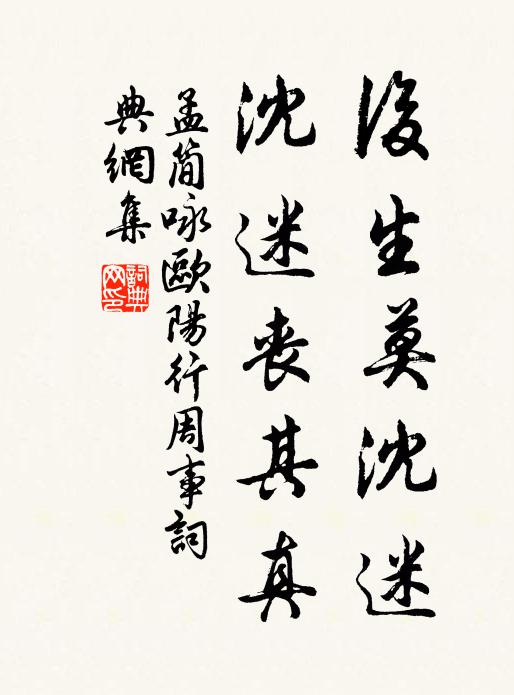 後生莫沈迷
沈迷喪其真
孟簡咏歐陽行周事詞
典網集
詞典
网印